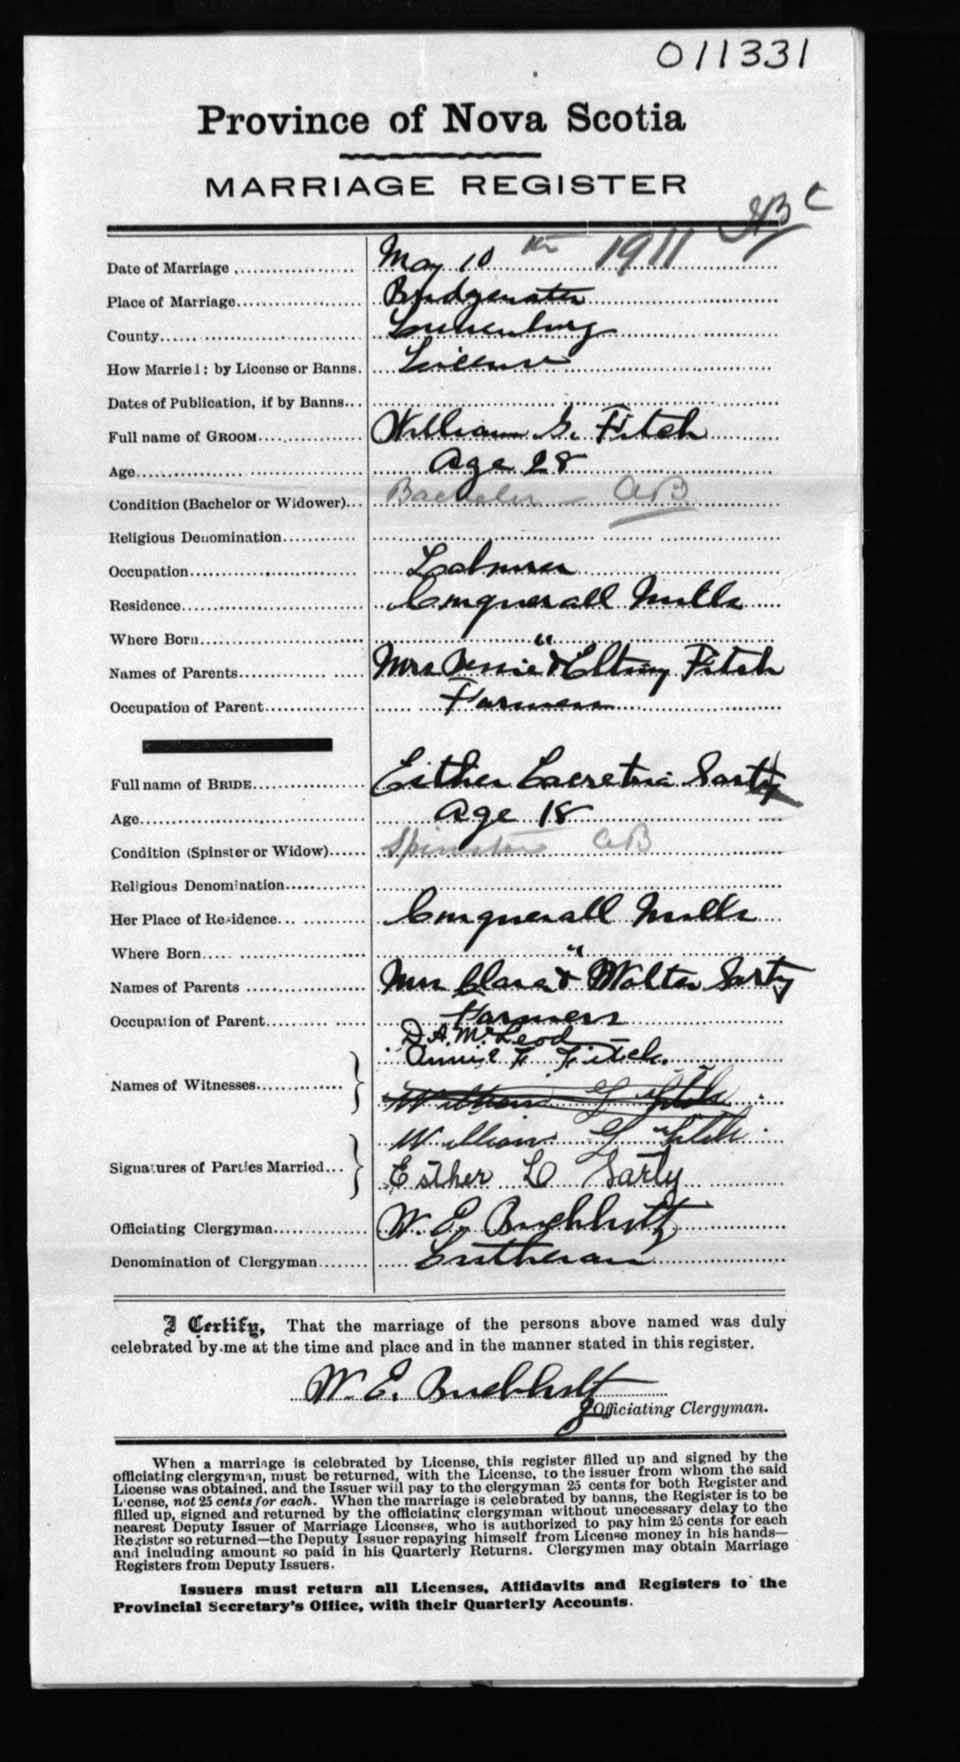 011331
Province of Nova Scotia
MARRIAGE REGISTER
Date of Marriage May 10th 1911
Place of Marriage Bridgewater
County Lunenburg
How Married: by License or Banns. License
Dates of Publication, if by Banns
Full name of GROOM William G. Fitch
Age Age 28
Condition (Bachelor or Widower) Bachelor - AB
Religious Denomination
Occupation Labourer
Residence Conquerall Mills
Where Born "
Names of Parents Mrs & Fitch
Occupation of Parent Farmers
Full name of BRIDE Esther Lacretia Sarty
Age Age 18
Condition (Spinster or Widow) Spinster AB
Religious Denomination
Her Place of Residence Conquerall Mills
Where Born "
Names of Parents Mrs Clara & Walter Sarty
Occupation of Parent Farmers
D. A. McLeod
Annie F. Fitch.
Names of Witnesses
William G Fitch
William G Fitch
Signatures of Parties Married
Esther L Sarty
Officiating Clergyman W. E.
Denomination of Clergyman Lutheran
I Certify, That the marriage of the persons above named was duly
celebrated by me at the time and place and in the manner stated in this register.
W. E.
Officiating Clergyman.
When a marriage is celebrated by License, this register filled up and signed by the
officiating clergyman, must be returned, with the License, to the issuer from whom the said
License was obtained, and the Issuer will pay to the clergyman 25 cents for both Register and
License, not 25 cents for each. When the marriage is celebrated by banns, the Register is to be
filled up, signed and returned by the officiating clergyman without unecessary delay to the
nearest Deputy Issuer of Marriage Licenses, who is authorized to pay him 25 cents for each
Register so returned—the Deputy Issuer repaying himself from License money in his hands—
and including amount so paid in his Quarterly Returns. Clergymen may obtain Marriage
Registers from Deputy Issuers.
Issuers must return all Licenses, Affidavits and Registers to the
Provincial Secretary's Office, with their Quarterly Accounts.